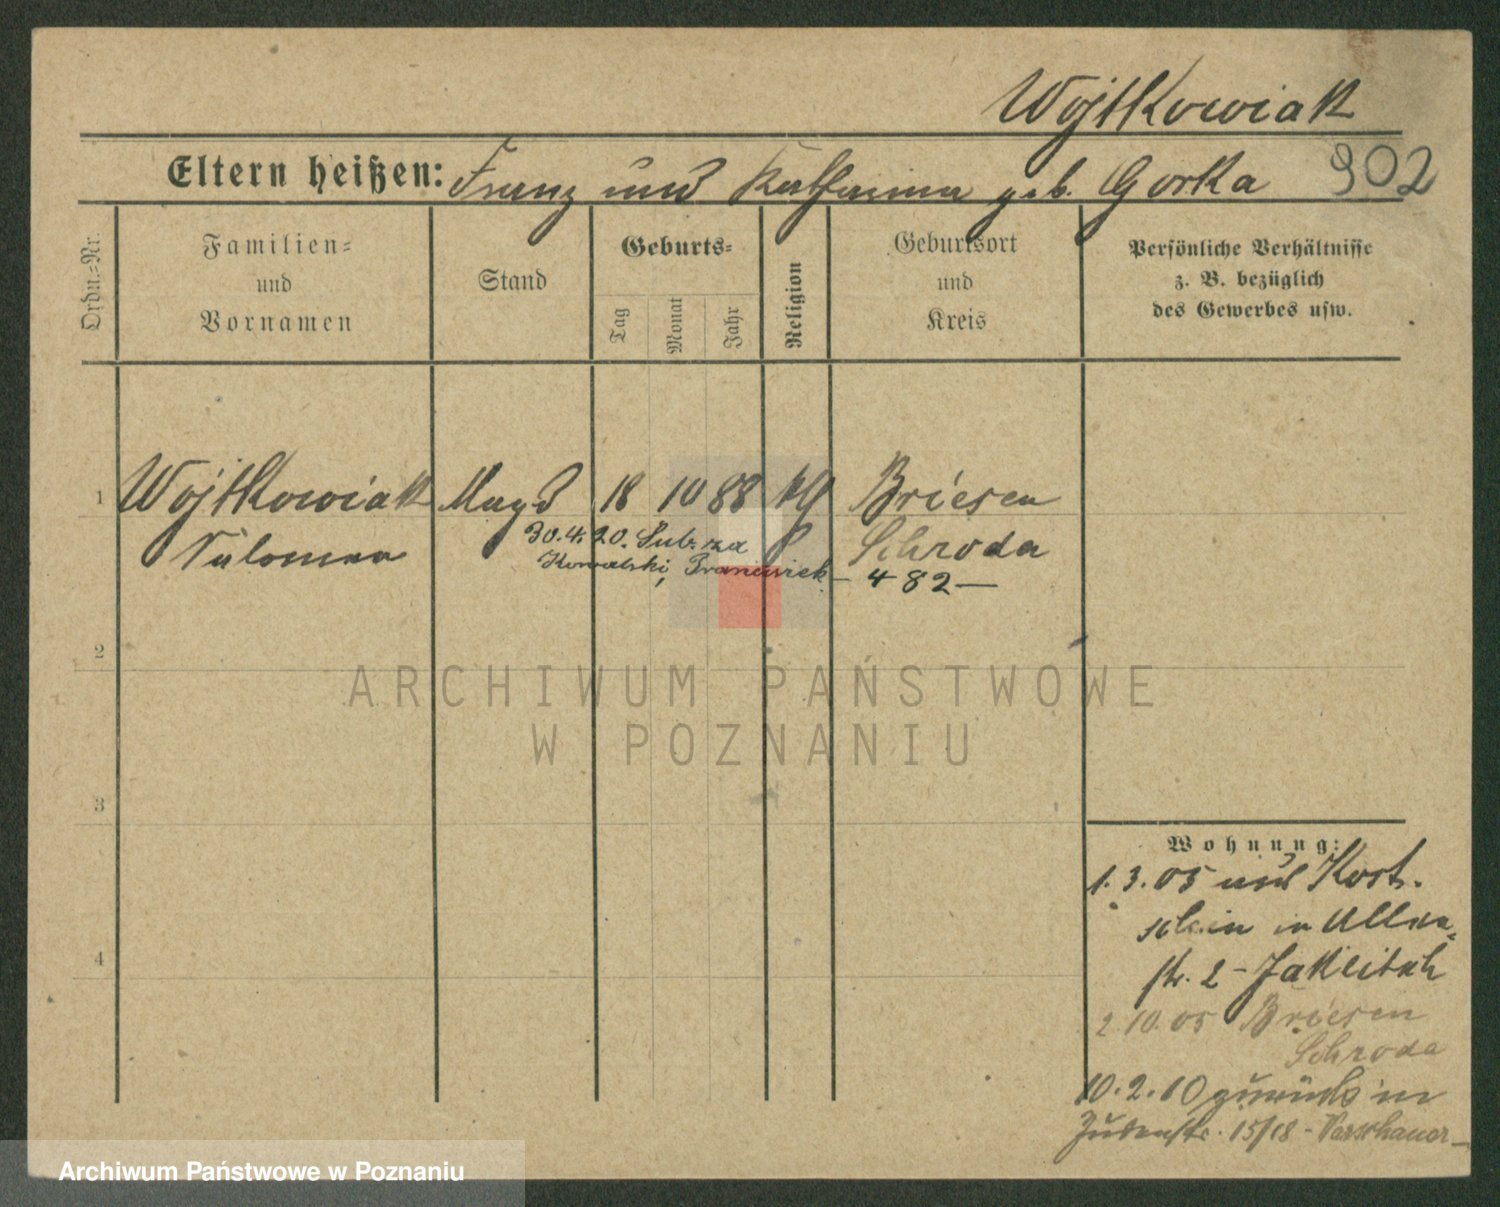 Wojtkowiak
Eltern heißen: Franz und Katharina geb. Gorka 902
Ordn.-Nr.
Familien-
und
Vornamen
Stand
Geburts-
Tag
Monat
Jahr
Religion
Geburtsort
und
Kreis
Persönliche Verhältnisse
z. B. bezüglich
des Gewerbes usw.
1 Wojtkowiak Magd 18 10 88 kg Briesen
Salomea Schroda
30.4.20. Ślub. za
Kowalski, Franciszek – 482 –
2
3
4
Wohnung:
1.3.05 aus Kost-
schin in
str. 2 –
2.10.05 Briesen
Schroda
10.2.10 zurück in
Judenstr. 15/18 – Warschauer –
ARCHIWUM PAŃSTWOWE
W POZNANIU
Archiwum Państwowe w Poznaniu